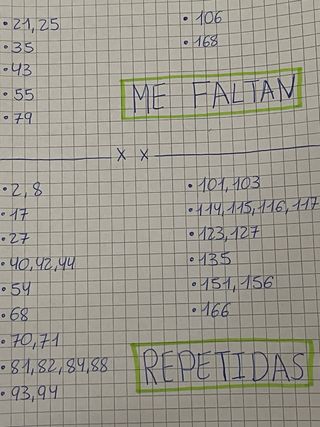 • 21, 25
• 35
• 43
• 55
• 79
• 106
• 168
ME FALTAN
x x
• 2, 8
• 17
• 27
• 40, 42, 44
• 54
• 68
• 70, 71
• 81, 82, 84, 88
• 93, 94
• 101, 103
• 114, 115, 116, 117
• 123, 127
• 135
• 151, 156
• 166
REPETIDAS